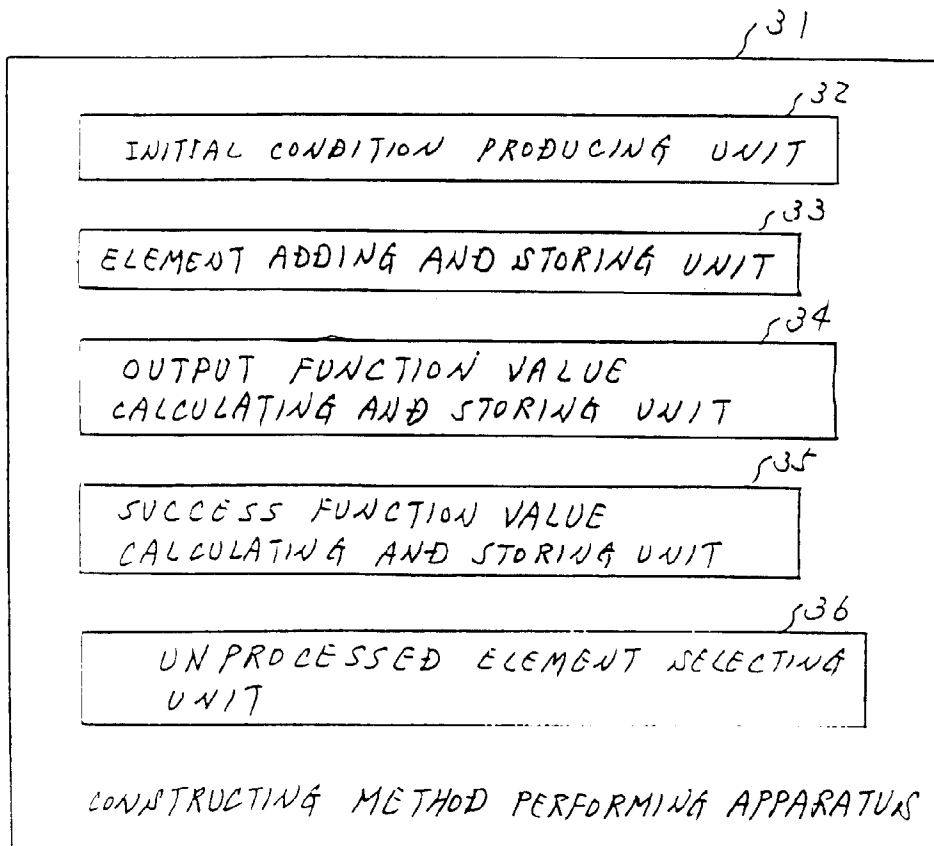 31
32
INITIAL CONDITION PRODUCING UNIT
33
ELEMENT ADDING AND STORING UNIT
34
OUTPUT FUNCTION VALUE
CALCULATING AND STORING UNIT
35
SUCCESS FUNCTION VALUE
CALCULATING AND STORING UNIT
36
UNPROCESSED ELEMENT SELECTING
UNIT
CONSTRUCTING METHOD PERFORMING APPARATUS